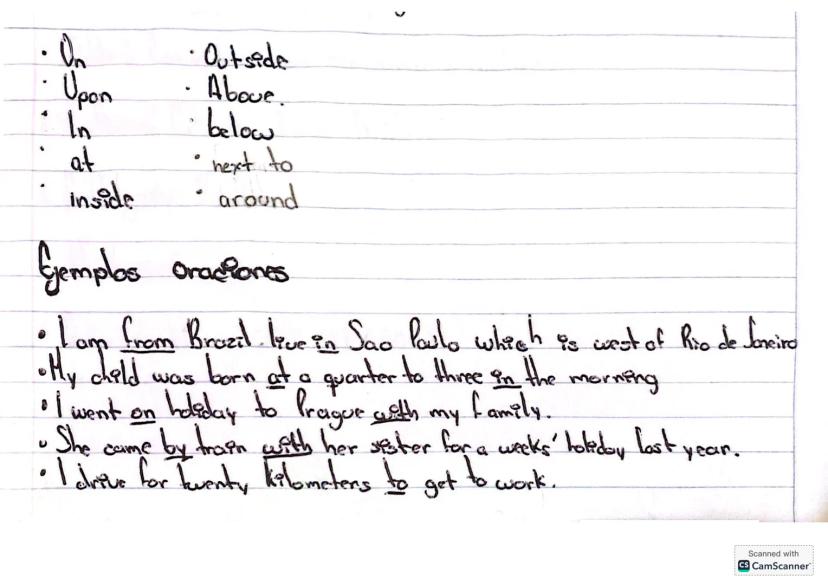 • On • Outside
• Upon • Above.
• In • below
• at • next to
• inside • around
Ejemplos oraciones
• I am from Brazil live in Sao Paulo which is west of Rio de Janeiro
• My child was born at a quarter to three in the morning
• I went on holiday to Prague with my family.
• She came by train with her sister for a weeks' holiday last year.
• I drive for twenty kilometers to get to work.
Scanned with
CS CamScanner